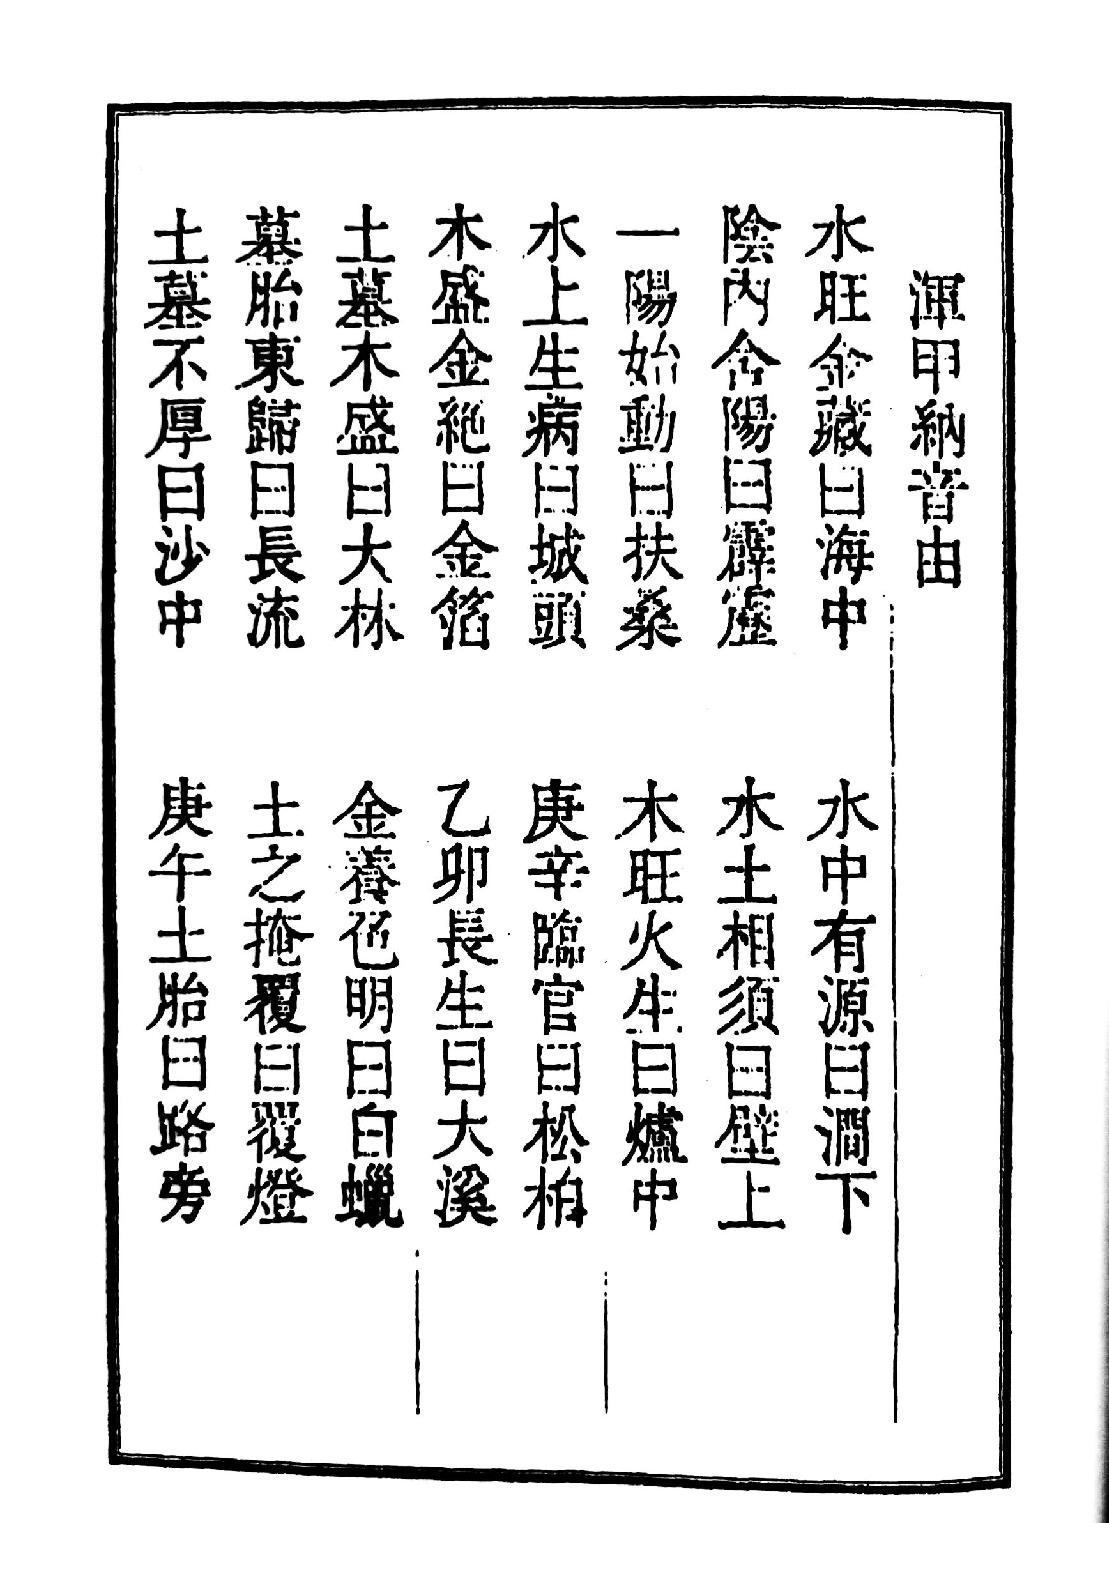 渾甲納音由
水旺金藏曰海中　水中有源曰澗下
陰內含陽曰霹靂　水土相須曰壁上
一陽始動曰扶桑　木旺火生曰爐中
水上生病曰城頭　庚辛臨官曰松柏
木盛金絕曰金箔　乙卯長生曰大溪
土墓木盛曰大林　金養色明曰白蠟
墓胎東歸曰長流　土之掩覆曰覆燈
土墓不厚曰沙中　庚午土胎曰路旁